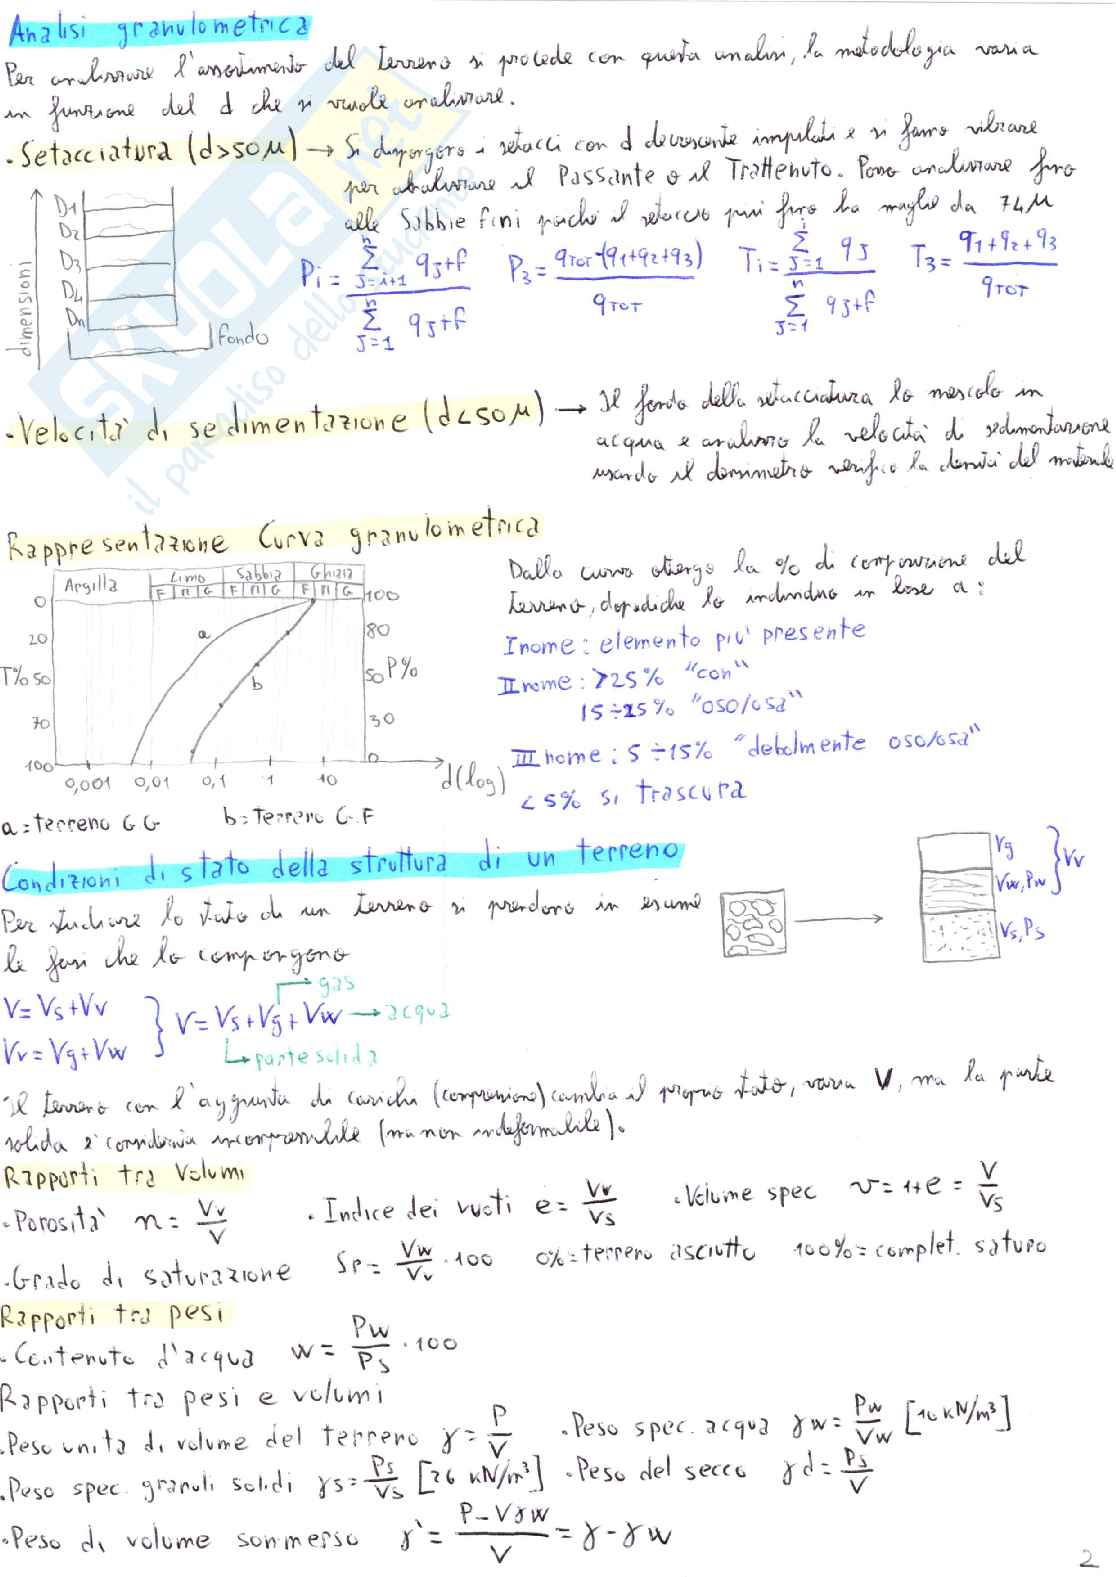 Analisi granulometrica
Per analizzare l'assortimento del terreno si procede con questa analisi, la metodologia varia
in funzione del d che si vuole analizzare.
. Setacciatura (d>50μ) → Si dispongono i setacci con d decrescente impilati e si fanno vibrare
per analizzare il Passante o il Trattenuto. Posso analizzare fino
alle Sabbie fini poiché il setaccio più fino ha maglie da 74μ
dimensioni
D1
D2
D3
D4
Dn
fondo
Pi = Σ(j=i+1, n) qj+f / Σ(j=1, n) qj+f   P3 = qTOT-(q1+q2+q3) / qTOT   Ti = Σ(j=1, i) qj / Σ(j=1, n) qj+f   T3 = q1+q2+q3 / qTOT
. Velocità di sedimentazione (d<50μ) → Il fondo della setacciatura lo mescolo in
acqua e analizzo la velocità di sedimentazione
usando il densimetro verifico la densità del materiale
Rappresentazione Curva granulometrica
Argilla Limo Sabbia Ghiaia
F M G F M G F M G
0 100
20 80
T% 50 50 P%
70 30
100 0
a
b
0,001 0,01 0,1 1 10 d(log)
a = terreno G G b = terreno G.F
Dalla curva ottengo la % di composizione del
terreno, dopodiche lo individuo in base a:
I nome: elemento più presente
II nome: >25% "con"
15÷25% "oso/osa"
III nome: 5÷15% "debolmente oso/osa"
<5% si trascura
Condizioni di stato della struttura di un terreno
Per studiare lo stato di un terreno si prendono in esame
le fasi che lo compongono
Vg
Vw, Pw
Vs, Ps
} Vv
V = Vs+Vv
Vv = Vg+Vw
} V = Vs+Vg+Vw → acqua
gas
parte solida
Il terreno con l'aggiunta di carichi (compressione) cambia il proprio stato, varia V, ma la parte
solida è considerata incompressibile (ma non indeformabile).
Rapporti tra Volumi
. Porosità n = Vv/V . Indice dei vuoti e = Vv/Vs . Volume spec v = 1+e = V/Vs
. Grado di saturazione Sr = Vw/Vv · 100 0%=terreno asciutto 100%=complet. saturo
Rapporti tra pesi
. Contenuto d'acqua w = Pw/Ps · 100
Rapporti tra pesi e volumi
. Peso unità di volume del terreno γ = P/V . Peso spec. acqua γw = Pw/Vw [10 kN/m³]
. Peso spec. granuli solidi γs = Ps/Vs [26 kN/m³] . Peso del secco γd = Ps/V
. Peso di volume sommerso γ' = P-Vγw / V = γ-γw
2
SKUOLA.net
il paradiso dello studente